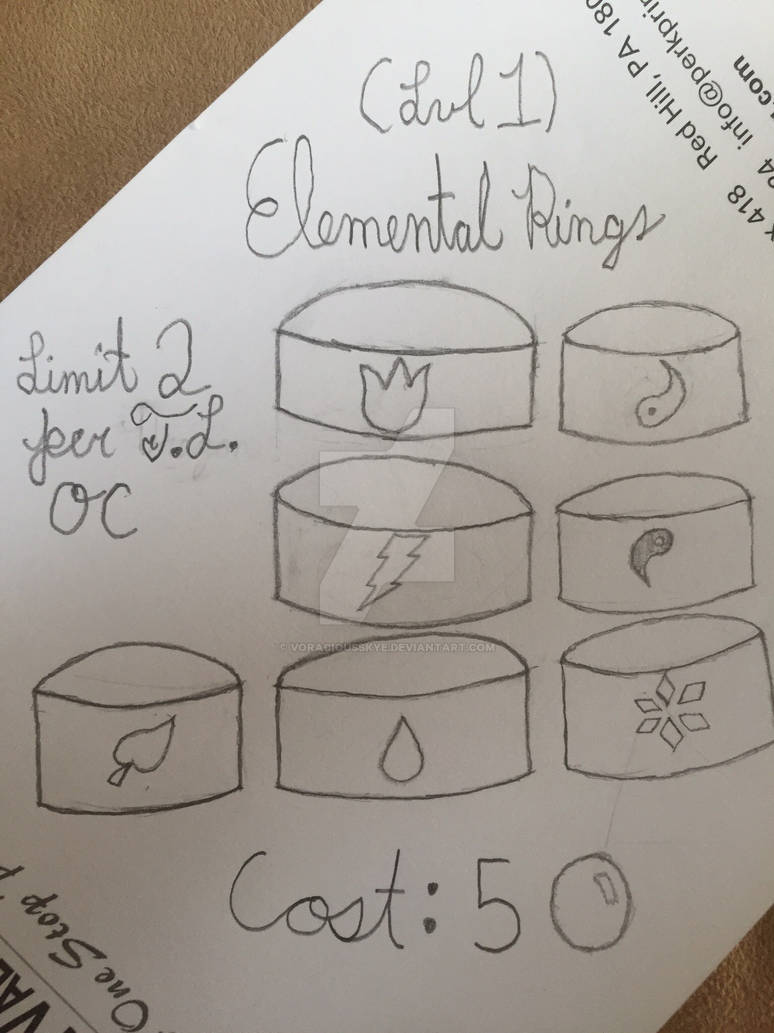 (Lvl 1)
Elemental Rings
Limit 2
per T.L.
OC
Cost: 5
© VORACIOUSSKYE.DEVIANTART.COM
Red Hill, PA 180
418
info@perkprin
.com
One Stop
VAL